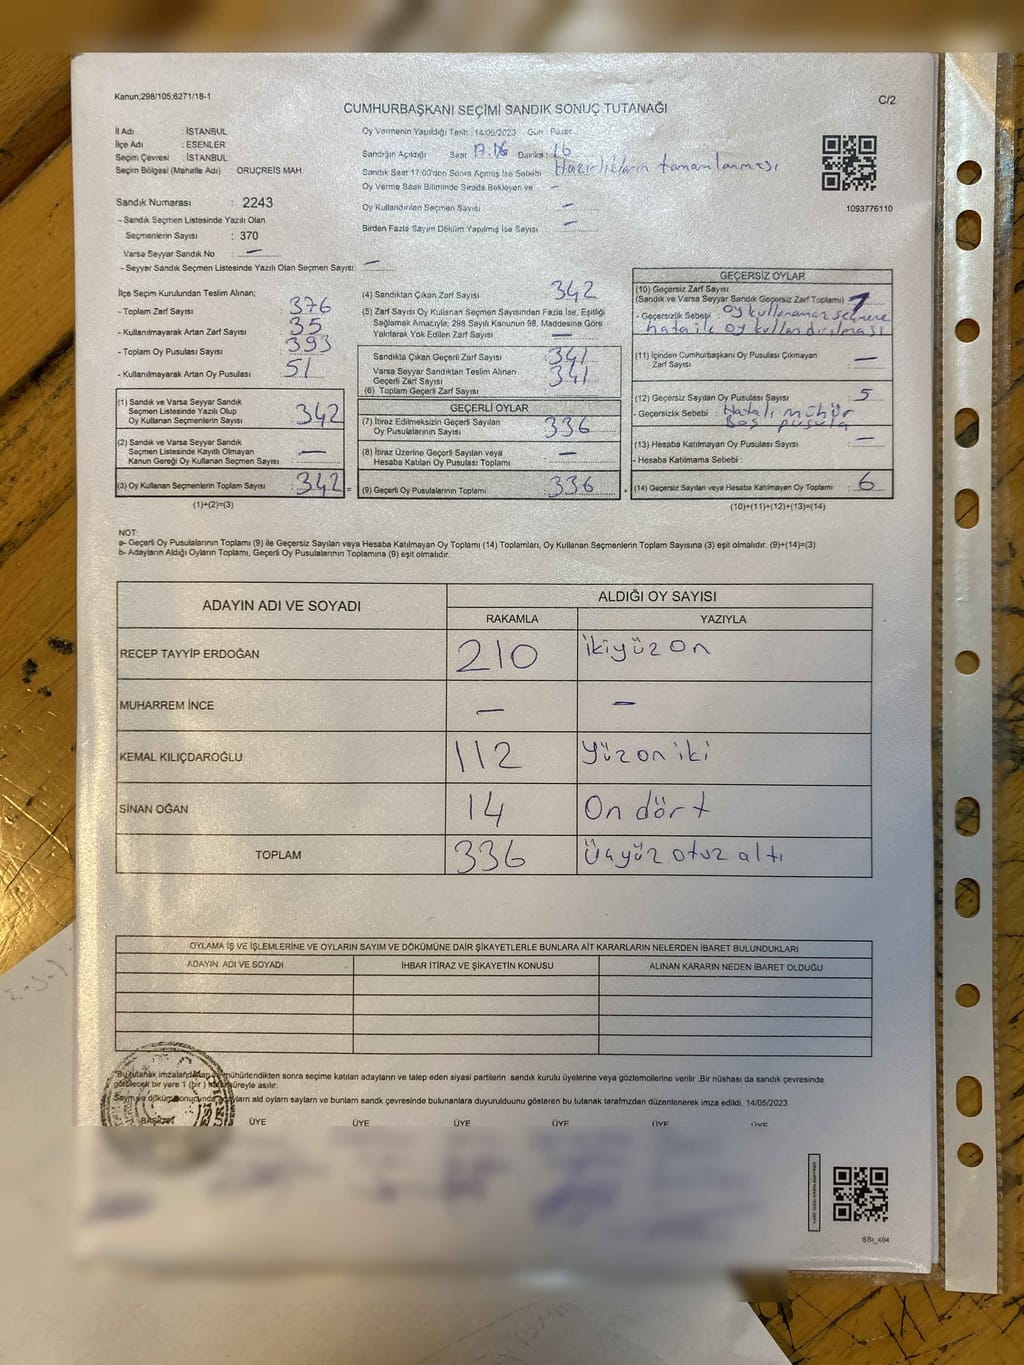 Kanun;298/105;6271/18-1
C/2
CUMHURBAŞKANI SEÇİMİ SANDIK SONUÇ TUTANAĞI
İl Adı : İSTANBUL
İlçe Adı : ESENLER
Seçim Çevresi : İSTANBUL
Seçim Bölgesi (Mahalle Adı) : ORUÇREİS MAH.
Sandık Numarası : 2243
- Sandık Seçmen Listesinde Yazılı Olan
Seçmenlerin Sayısı : 370
Varsa Seyyar Sandık No : —
- Seyyar Sandık Seçmen Listesinde Yazılı Olan Seçmen Sayısı: —
Oy Vermenin Yapıldığı Tarih : 14/05/2023 Gün : Pazar
Sandığın Açıldığı Saat 17:16 Dakika : 16
Sandık Saat 17:00'den Sonra Açılmış İse Sebebi : Hazırlıkların tamamlanması
Oy Verme Saati Bitiminde Sırada Bekleyen ve : –
Oy Kullandırılan Seçmen Sayısı : —
Birden Fazla Sayım Döküm Yapılmış İse Sayısı : —
1093776110
İlçe Seçim Kurulundan Teslim Alınan;
- Toplam Zarf Sayısı : 376
- Kullanılmayarak Artan Zarf Sayısı : 35
- Toplam Oy Pusulası Sayısı : 393
- Kullanılmayarak Artan Oy Pusulası : 51
(1) Sandık ve Varsa Seyyar Sandık
Seçmen Listesinde Yazılı Olup
Oy Kullanan Seçmenlerin Sayısı : 342
(2) Sandık ve Varsa Seyyar Sandık
Seçmen Listesinde Kayıtlı Olmayan
Kanun Gereği Oy Kullanan Seçmen Sayısı : —
(3) Oy Kullanan Seçmenlerin Toplam Sayısı : 342 =
(1)+(2)=(3)
(4) Sandıktan Çıkan Zarf Sayısı : 342
(5) Zarf Sayısı Oy Kullanan Seçmen Sayısından Fazla İse, Eşitliği
Sağlamak Amacıyla; 298 Sayılı Kanunun 98. Maddesine Göre
Yakılarak Yok Edilen Zarf Sayısı : —
Sandıkta Çıkan Geçerli Zarf Sayısı : 341
Varsa Seyyar Sandıktan Teslim Alınan
Geçerli Zarf Sayısı : 341
(6) Toplam Geçerli Zarf Sayısı
GEÇERLİ OYLAR
(7) İtiraz Edilmeksizin Geçerli Sayılan
Oy Pusulalarının Sayısı : 336
(8) İtiraz Üzerine Geçerli Sayılan veya
Hesaba Katılan Oy Pusulası Toplamı : —
(9) Geçerli Oy Pusulalarının Toplamı : 336 +
GEÇERSİZ OYLAR
(10) Geçersiz Zarf Sayısı
(Sandık ve Varsa Seyyar Sandık Geçersiz Zarf Toplamı) : 1
- Geçersizlik Sebebi : oy kullanamaz seçmene
hata ile oy kullandırılması
(11) İçinden Cumhurbaşkanı Oy Pusulası Çıkmayan
Zarf Sayısı : —
(12) Geçersiz Sayılan Oy Pusulası Sayısı : 5
- Geçersizlik Sebebi : Hatalı mühür
Boş pusula
(13) Hesaba Katılmayan Oy Pusulası Sayısı : —
- Hesaba Katılmama Sebebi :
(14) Geçersiz Sayılan veya Hesaba Katılmayan Oy Toplamı : 6
(10)+(11)+(12)+(13)=(14)
NOT:
a- Geçerli Oy Pusulalarının Toplamı (9) ile Geçersiz Sayılan veya Hesaba Katılmayan Oy Toplamı (14) Toplamları, Oy Kullanan Seçmenlerin Toplam Sayısına (3) eşit olmalıdır. (9)+(14)=(3)
b- Adayların Aldığı Oyların Toplamı, Geçerli Oy Pusulalarının Toplamına (9) eşit olmalıdır.
ADAYIN ADI VE SOYADI
ALDIĞI OY SAYISI
RAKAMLA YAZIYLA
RECEP TAYYİP ERDOĞAN 210 ikiyüz on
MUHARREM İNCE — —
KEMAL KILIÇDAROĞLU 112 Yüz on iki
SİNAN OĞAN 14 On dört
TOPLAM 336 Üçyüz otuz altı
OYLAMA İŞ VE İŞLEMLERİNE VE OYLARIN SAYIM VE DÖKÜMÜNE DAİR ŞİKAYETLERLE BUNLARA AİT KARARLARIN NELERDEN İBARET BULUNDUKLARI
ADAYIN ADI VE SOYADI İHBAR İTİRAZ VE ŞİKAYETİN KONUSU ALINAN KARARIN NEDEN İBARET OLDUĞU
"Bu tutanak imzalandıktan ve mühürlendikten sonra seçime katılan adayların ve talep eden siyasi partilerin sandık kurulu üyelerine veya gözlemcilerine verilir .Bir nüshası da sandık çevresinde
görülecek bir yere 1 (bir ) hafta süreyle asılır.
Sayım ve döküm sonucunda adayların aldı oyların sayları ve bunların sandık çevresinde bulunanlara duyurulduunu gösteren bu tutanak tarafmızdan düzenlenerek imza edildi. 14/05/2023
BAŞKAN ÜYE ÜYE ÜYE ÜYE ÜYE ÜYE
SSt_404